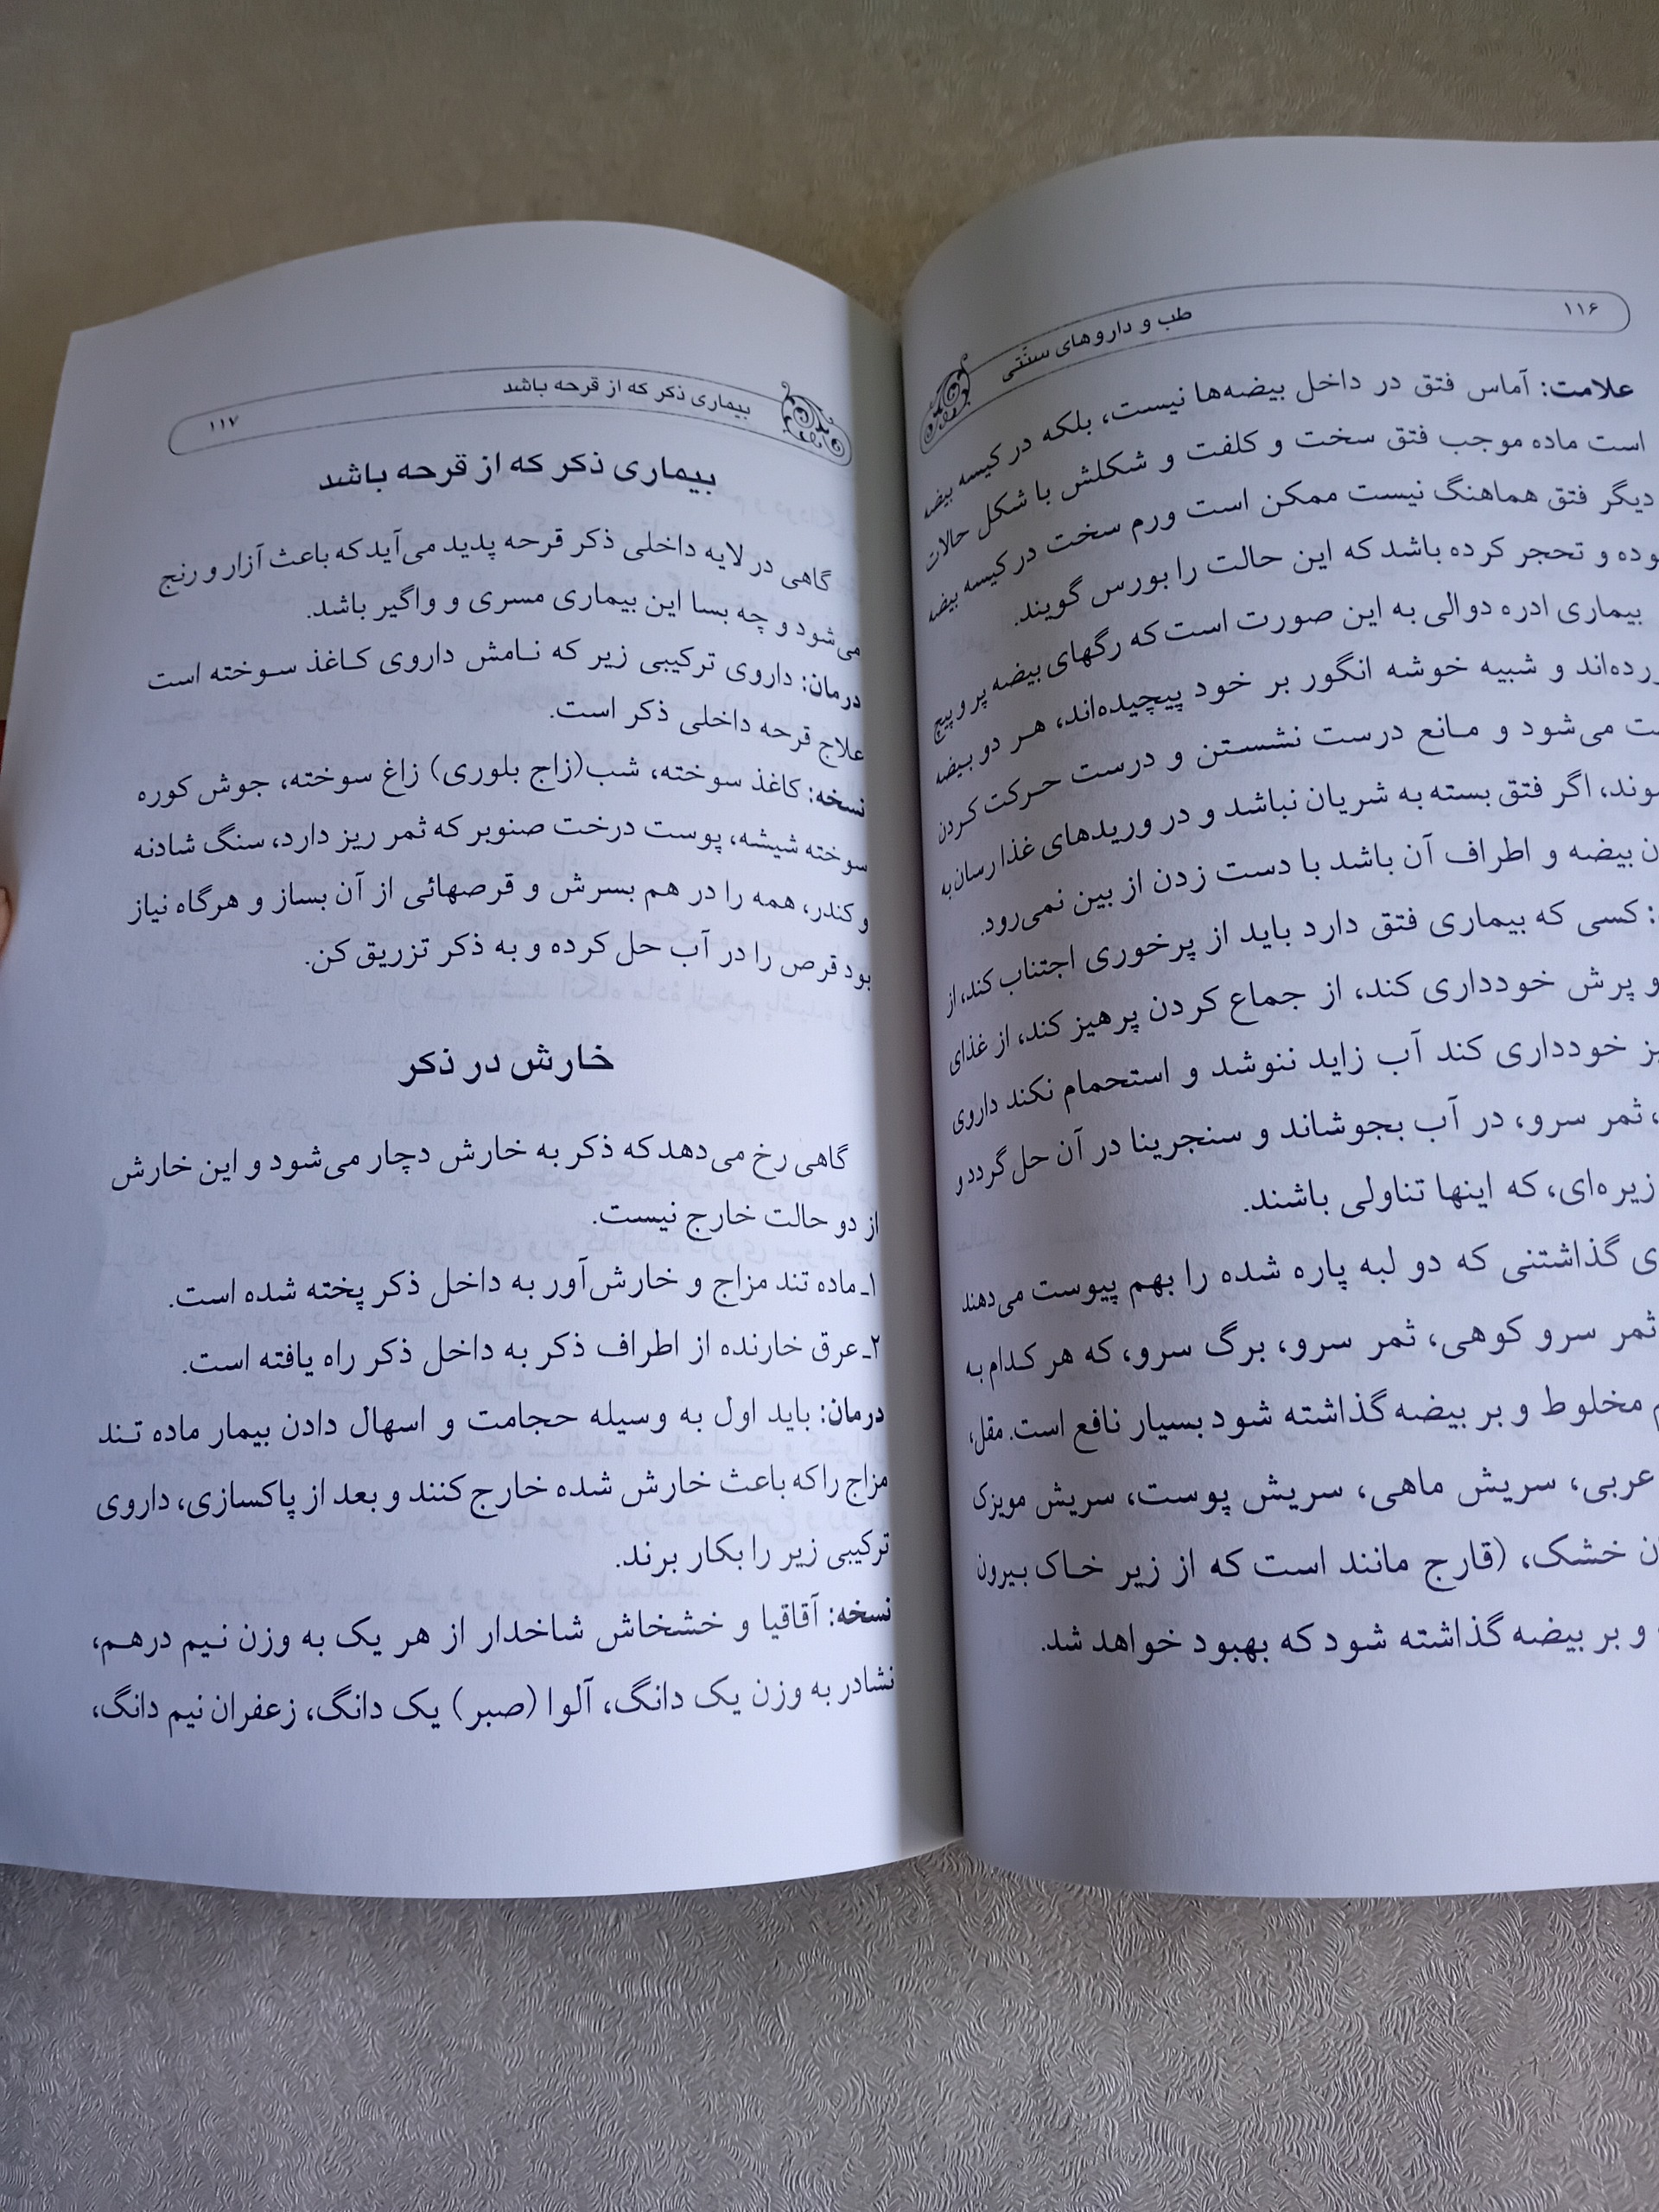 ۱۱۶
طب و داروهای سنّتی
علامت: آماس فتق در داخل بیضه‌ها نیست، بلکه در کیسه بیضه
است ماده موجب فتق سخت و کلفت و شکلش با شکل حالات
دیگر فتق هماهنگ نیست ممکن است ورم سخت در کیسه بیضه
وده و تحجر کرده باشد که این حالت را بورس گویند.
بیماری ادره دوالی به این صورت است که رگهای بیضه پر و پیچ
رده‌اند و شبیه خوشه انگور بر خود پیچیده‌اند، هر دو بیضه
ت می‌شود و مانع درست نشستن و درست حرکت کردن
وند، اگر فتق بسته به شریان نباشد و در وریدهای غذا رسان به
ن بیضه و اطراف آن باشد با دست زدن از بین نمی‌رود.
: کسی که بیماری فتق دارد باید از پرخوری اجتناب کند، از
و پرش خودداری کند، از جماع کردن پرهیز کند، از غذای
یز خودداری کند آب زاید ننوشد و استحمام نکند داروی
، ثمر سرو، در آب بجوشاند و سنجرینا در آن حل گردد و
زیره‌ای، که اینها تناولی باشند.
ی گذاشتنی که دو لبه پاره شده را بهم پیوست می‌دهند
ثمر سرو کوهی، ثمر سرو، برگ سرو، که هر کدام به
م مخلوط و بر بیضه گذاشته شود بسیار نافع است. مقل،
عربی، سریش ماهی، سریش پوست، سریش مویزک
ن خشک، (قارج مانند است که از زیر خاک بیرون
و بر بیضه گذاشته شود که بهبود خواهد شد.
بیماری ذکر که از قرحه باشد
۱۱۷
بیماری ذکر که از قرحه باشد
گاهی در لایه داخلی ذکر قرحه پدید می‌آید که باعث آزار و رنج
می‌شود و چه بسا این بیماری مسری و واگیر باشد.
درمان: داروی ترکیبی زیر که نامش داروی کاغذ سوخته است
علاج قرحه داخلی ذکر است.
نسخه: کاغذ سوخته، شب(زاج بلوری) زاغ سوخته، جوش کوره
سوخته شیشه، پوست درخت صنوبر که ثمر ریز دارد، سنگ شادنه
و کندر، همه را در هم بسرش و قرصهائی از آن بساز و هرگاه نیاز
بود قرص را در آب حل کرده و به ذکر تزریق کن.
خارش در ذکر
گاهی رخ می‌دهد که ذکر به خارش دچار می‌شود و این خارش
از دو حالت خارج نیست.
۱ـ ماده تند مزاج و خارش‌آور به داخل ذکر پخته شده است.
۲ـ عرق خارنده از اطراف ذکر به داخل ذکر راه یافته است.
درمان: باید اول به وسیله حجامت و اسهال دادن بیمار ماده تند
مزاج را که باعث خارش شده خارج کنند و بعد از پاکسازی، داروی
ترکیبی زیر را بکار برند.
نسخه: آقاقیا و خشخاش شاخدار از هر یک به وزن نیم درهم،
نشادر به وزن یک دانگ، آلوا (صبر) یک دانگ، زعفران نیم دانگ،